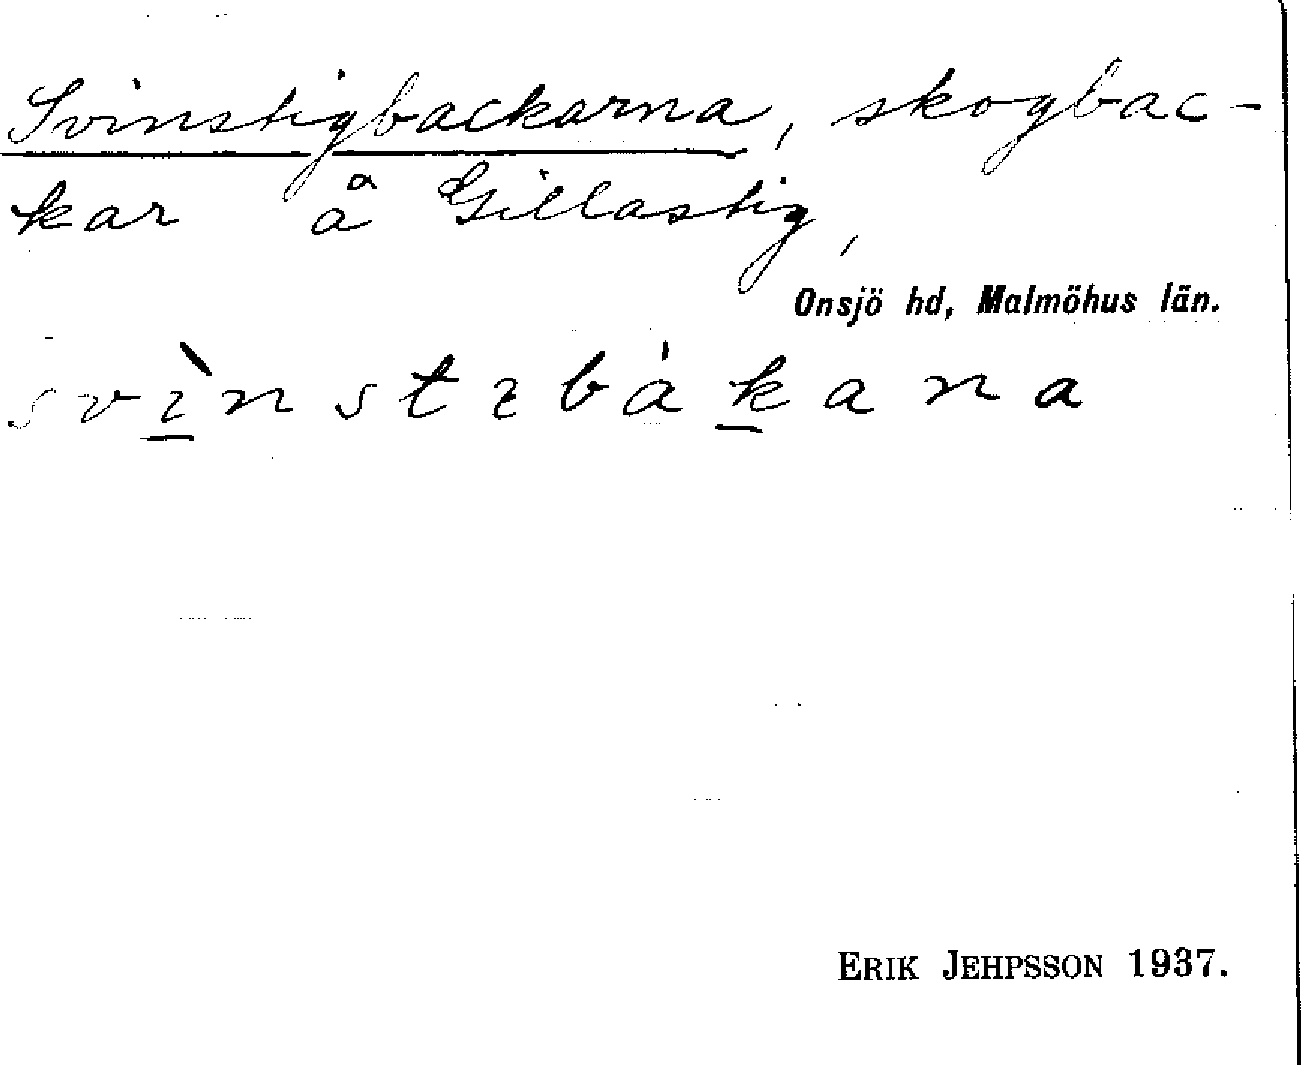 Svinstigbackarna, skogbac-
kar å Gillastig,
Onsjö hd, Malmöhus län.
svı̠̀nstɩbák̠ana
ERIK JEHPSSON 1937.